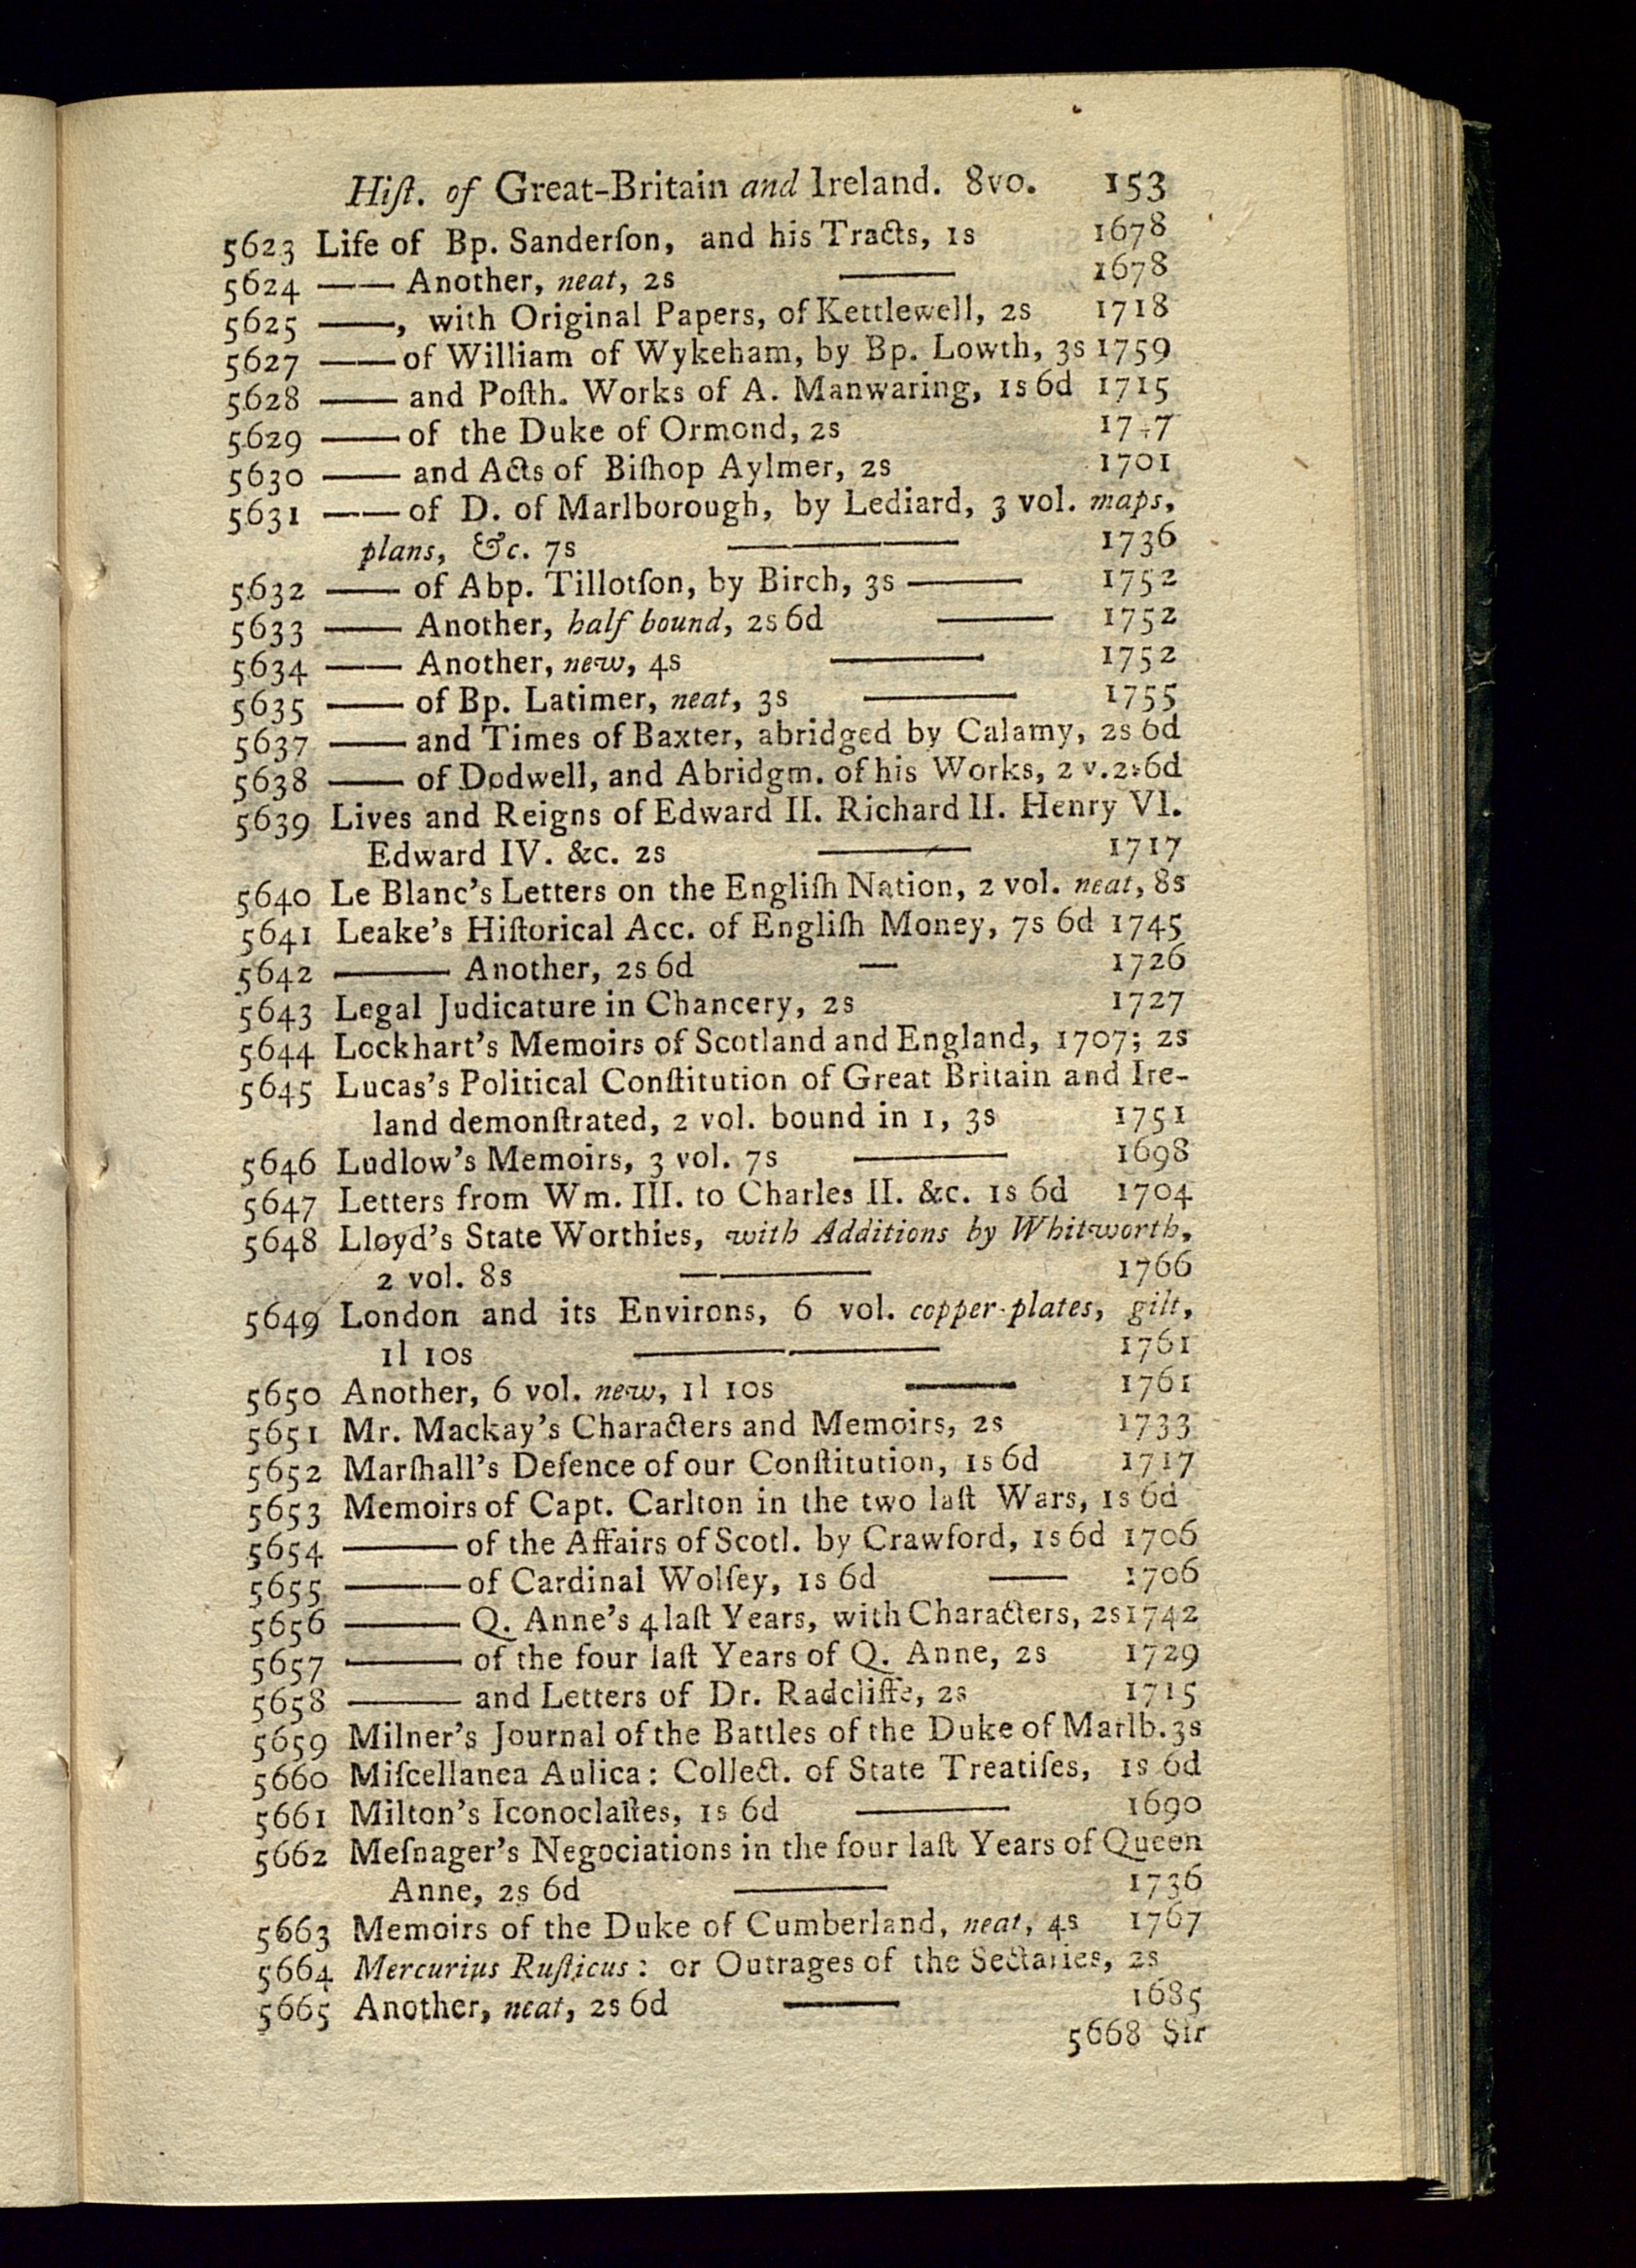 Hiſt. of Great-Britain and Ireland. 8vo. 153
5623 Life of Bp. Sanderſon, and his Tracts, 1s 1678
5624 —— Another, neat, 2s —— 1678
5625 ——, with Original Papers, of Kettlewell, 2s 1718
5627 —— of William of Wykeham, by Bp. Lowth, 3s 1759
5628 —— and Poſth. Works of A. Manwaring, 1s 6d 1715
5629 —— of the Duke of Ormond, 2s
5630 —— and Acts of Biſhop Aylmer, 2s 1701
5631 —— of D. of Marlborough, by Lediard, 3 vol. maps,
plans, &c. 7s —— 1736
5632 —— of Abp. Tillotſon, by Birch, 3s —— 1752
5633 —— Another, half bound, 2s 6d —— 1752
5634 —— Another, new, 4s —— 1752
5635 —— of Bp. Latimer, neat, 3s —— 1755
5637 —— and Times of Baxter, abridged by Calamy, 2s 6d
5638 —— of Dodwell, and Abridgm. of his Works, 2 v. 2s 6d
5639 Lives and Reigns of Edward II. Richard II. Henry VI.
Edward IV. &c. 2s —— 1717
5640 Le Blanc's Letters on the Engliſh Nation, 2 vol. neat, 8s
5641 Leake's Hiſtorical Acc. of Engliſh Money, 7s 6d 1745
5642 —— Another, 2s 6d — 1726
5643 Legal Judicature in Chancery, 2s 1727
5644 Lockhart's Memoirs of Scotland and England, 1707; 2s
5645 Lucas's Political Conſtitution of Great Britain and Ire-
land demonſtrated, 2 vol. bound in 1, 3s 1751
5646 Ludlow's Memoirs, 3 vol. 7s —— 1698
5647 Letters from Wm. III. to Charles II. &c. 1s 6d 1704
5648 Lloyd's State Worthies, with Additions by Whitworth,
2 vol. 8s —— 1766
5649 London and its Environs, 6 vol. copper-plates, gilt,
1l 10s —— 1761
5650 Another, 6 vol. new, 1l 10s —— 1761
5651 Mr. Mackay's Characters and Memoirs, 2s 1733
5652 Marſhall's Defence of our Conſtitution, 1s 6d 1717
5653 Memoirs of Capt. Carlton in the two laſt Wars, 1s 6d
5654 —— of the Affairs of Scotl. by Crawford, 1s 6d 1706
5655 —— of Cardinal Wolſey, 1s 6d —— 1706
5656 —— Q. Anne's 4 laſt Years, with Characters, 2s 1742
5657 —— of the four laſt Years of Q. Anne, 2s 1729
5658 —— and Letters of Dr. Radcliffe, 2s 1715
5659 Milner's Journal of the Battles of the Duke of Marlb. 3s
5660 Miſcellanea Aulica: Collect. of State Treatiſes, 1s 6d
5661 Milton's Iconoclaſtes, 1s 6d —— 1690
5662 Meſnager's Negociations in the four laſt Years of Queen
Anne, 2s 6d —— 1736
5663 Memoirs of the Duke of Cumberland, neat, 4s 1767
5664 Mercurius Ruſticus: or Outrages of the Sectaries, 2s
5665 Another, neat, 2s 6d —— 1685
5668 Sir